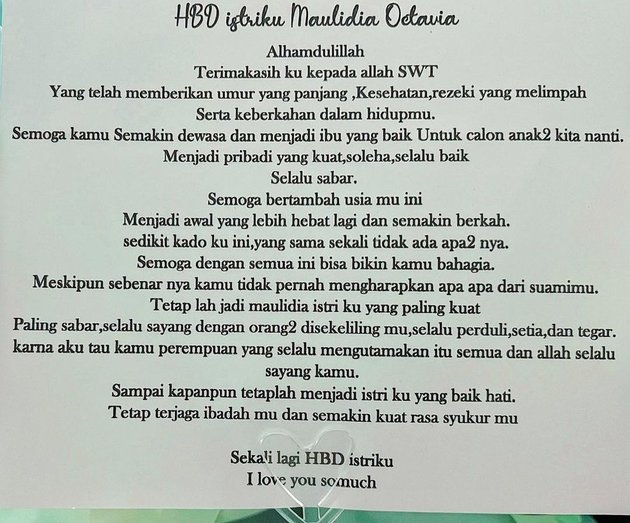 HBD istriku Maulidia Octavia
Alhamdulillah
Terimakasih ku kepada allah SWT
Yang telah memberikan umur yang panjang ,Kesehatan,rezeki yang melimpah
Serta keberkahan dalam hidupmu.
Semoga kamu Semakin dewasa dan menjadi ibu yang baik Untuk calon anak2 kita nanti.
Menjadi pribadi yang kuat,soleha,selalu baik
Selalu sabar.
Semoga bertambah usia mu ini
Menjadi awal yang lebih hebat lagi dan semakin berkah.
sedikit kado ku ini,yang sama sekali tidak ada apa2 nya.
Semoga dengan semua ini bisa bikin kamu bahagia.
Meskipun sebenar nya kamu tidak pernah mengharapkan apa apa dari suamimu.
Tetap lah jadi maulidia istri ku yang paling kuat
Paling sabar,selalu sayang dengan orang2 disekeliling mu,selalu perduli,setia,dan tegar.
karna aku tau kamu perempuan yang selalu mengutamakan itu semua dan allah selalu
sayang kamu.
Sampai kapanpun tetaplah menjadi istri ku yang baik hati.
Tetap terjaga ibadah mu dan semakin kuat rasa syukur mu
Sekali lagi HBD istriku
I love you somuch